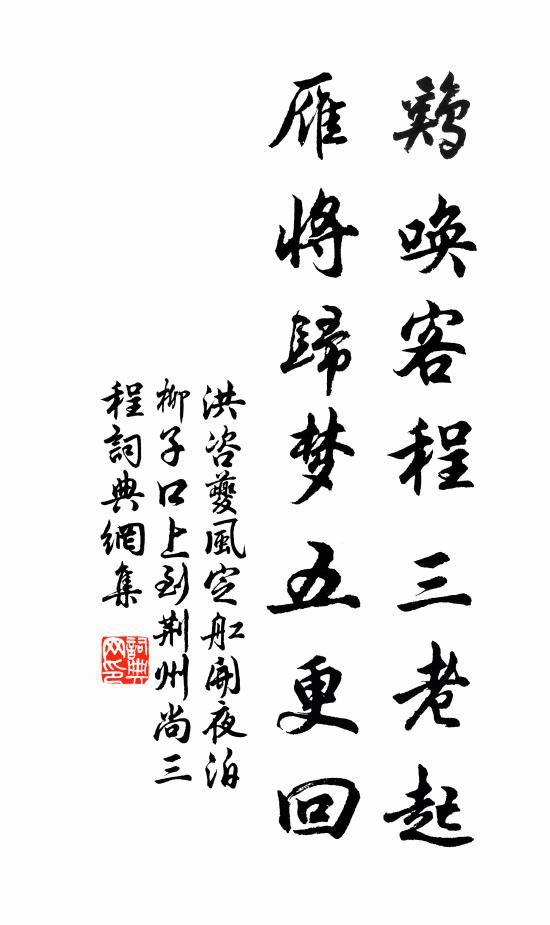 鷄唤客程三老起
雁將歸梦五更回
洪咨夔風定舡開夜泊
柳子口上到荆州尚三
程詞典網集
詞典
网印